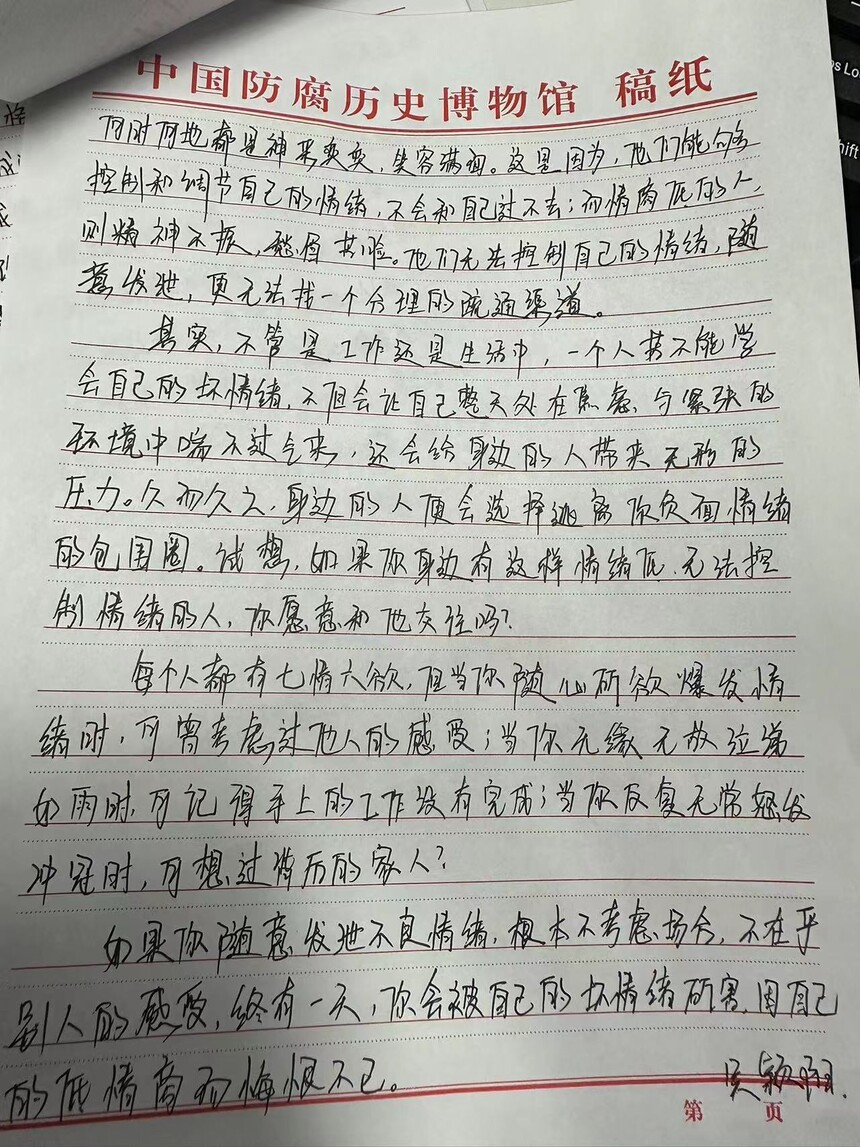 中国防腐历史博物馆 稿纸
何时何地都是神采奕奕,笑容满面。这是因为,他们能够
控制和调节自己的情绪,不会和自己过不去;而情商低的人,
则精神不振,愁眉苦脸。他们无法控制自己的情绪,随
意发泄,更无法找一个合理的疏通渠道。
其实,不管是工作还是生活中,一个人若不能学
会自己的坏情绪,不但会让自己整天处在焦虑、与紧张的
环境中喘不过气来,还会给身边的人带来无形的
压力。久而久之,身边的人便会选择逃离你负面情绪
的包围圈。试想,如果你身边有这样情绪低、无法控
制情绪的人,你愿意和他交往吗?
每个人都有七情六欲,但当你随心所欲爆发情
绪时,可曾考虑过他人的感受;当你无缘无故泣涕
如雨时,可记得手上的工作没有完成;当你反复无常怒发
冲冠时,可想过背后的家人?
如果你随意发泄不良情绪,根本不考虑场合,不在乎
别人的感受,终有一天,你会被自己的坏情绪所害,因自己
的低情商而悔恨不已。
吴颖
第 页
os Lo
shift